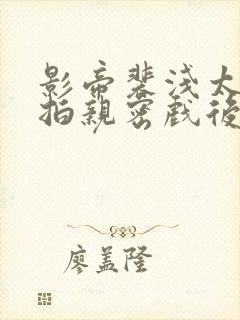 影帝裴浅大
拍親密戲後
廖盖隆